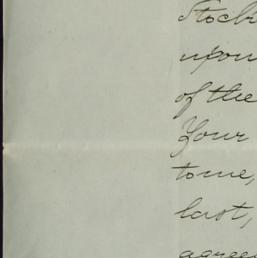 Stock
upon
of the
Your
to me,
last,
agree